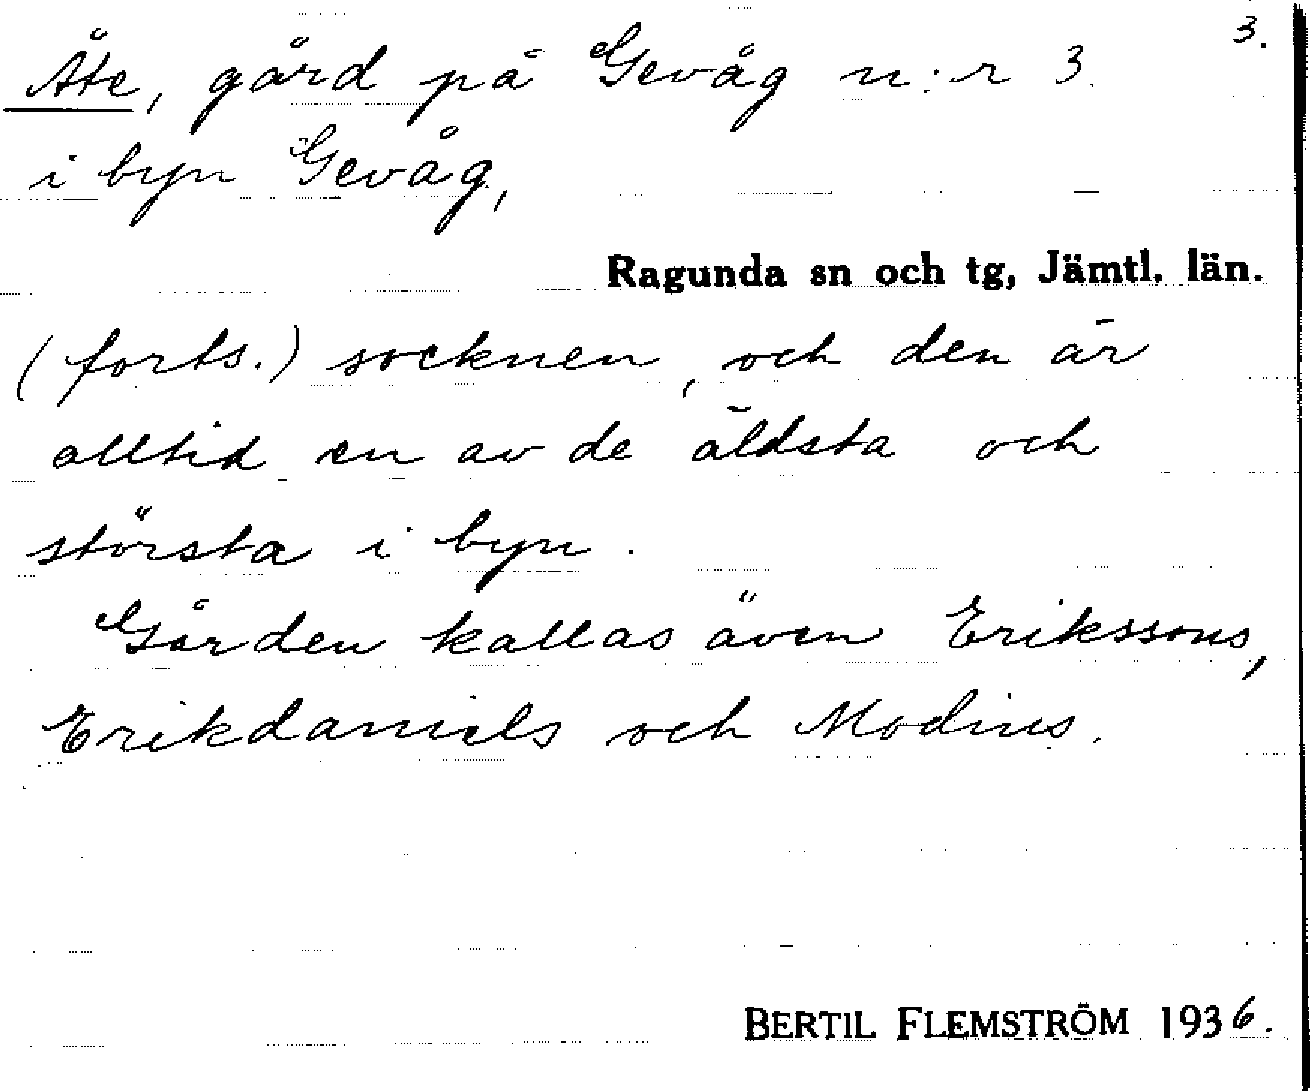 3.
Åte, gård på Gevåg n:r 3.
i byn Gevåg,
Ragunda sn och tg, Jämtl. län.
(forts.) socknen, och den är
alltid en av de äldsta och
största i byn.
Gården kallas även Erikssons,
Erikdaniels och Modins.
BERTIL FLEMSTRÖM 1936.